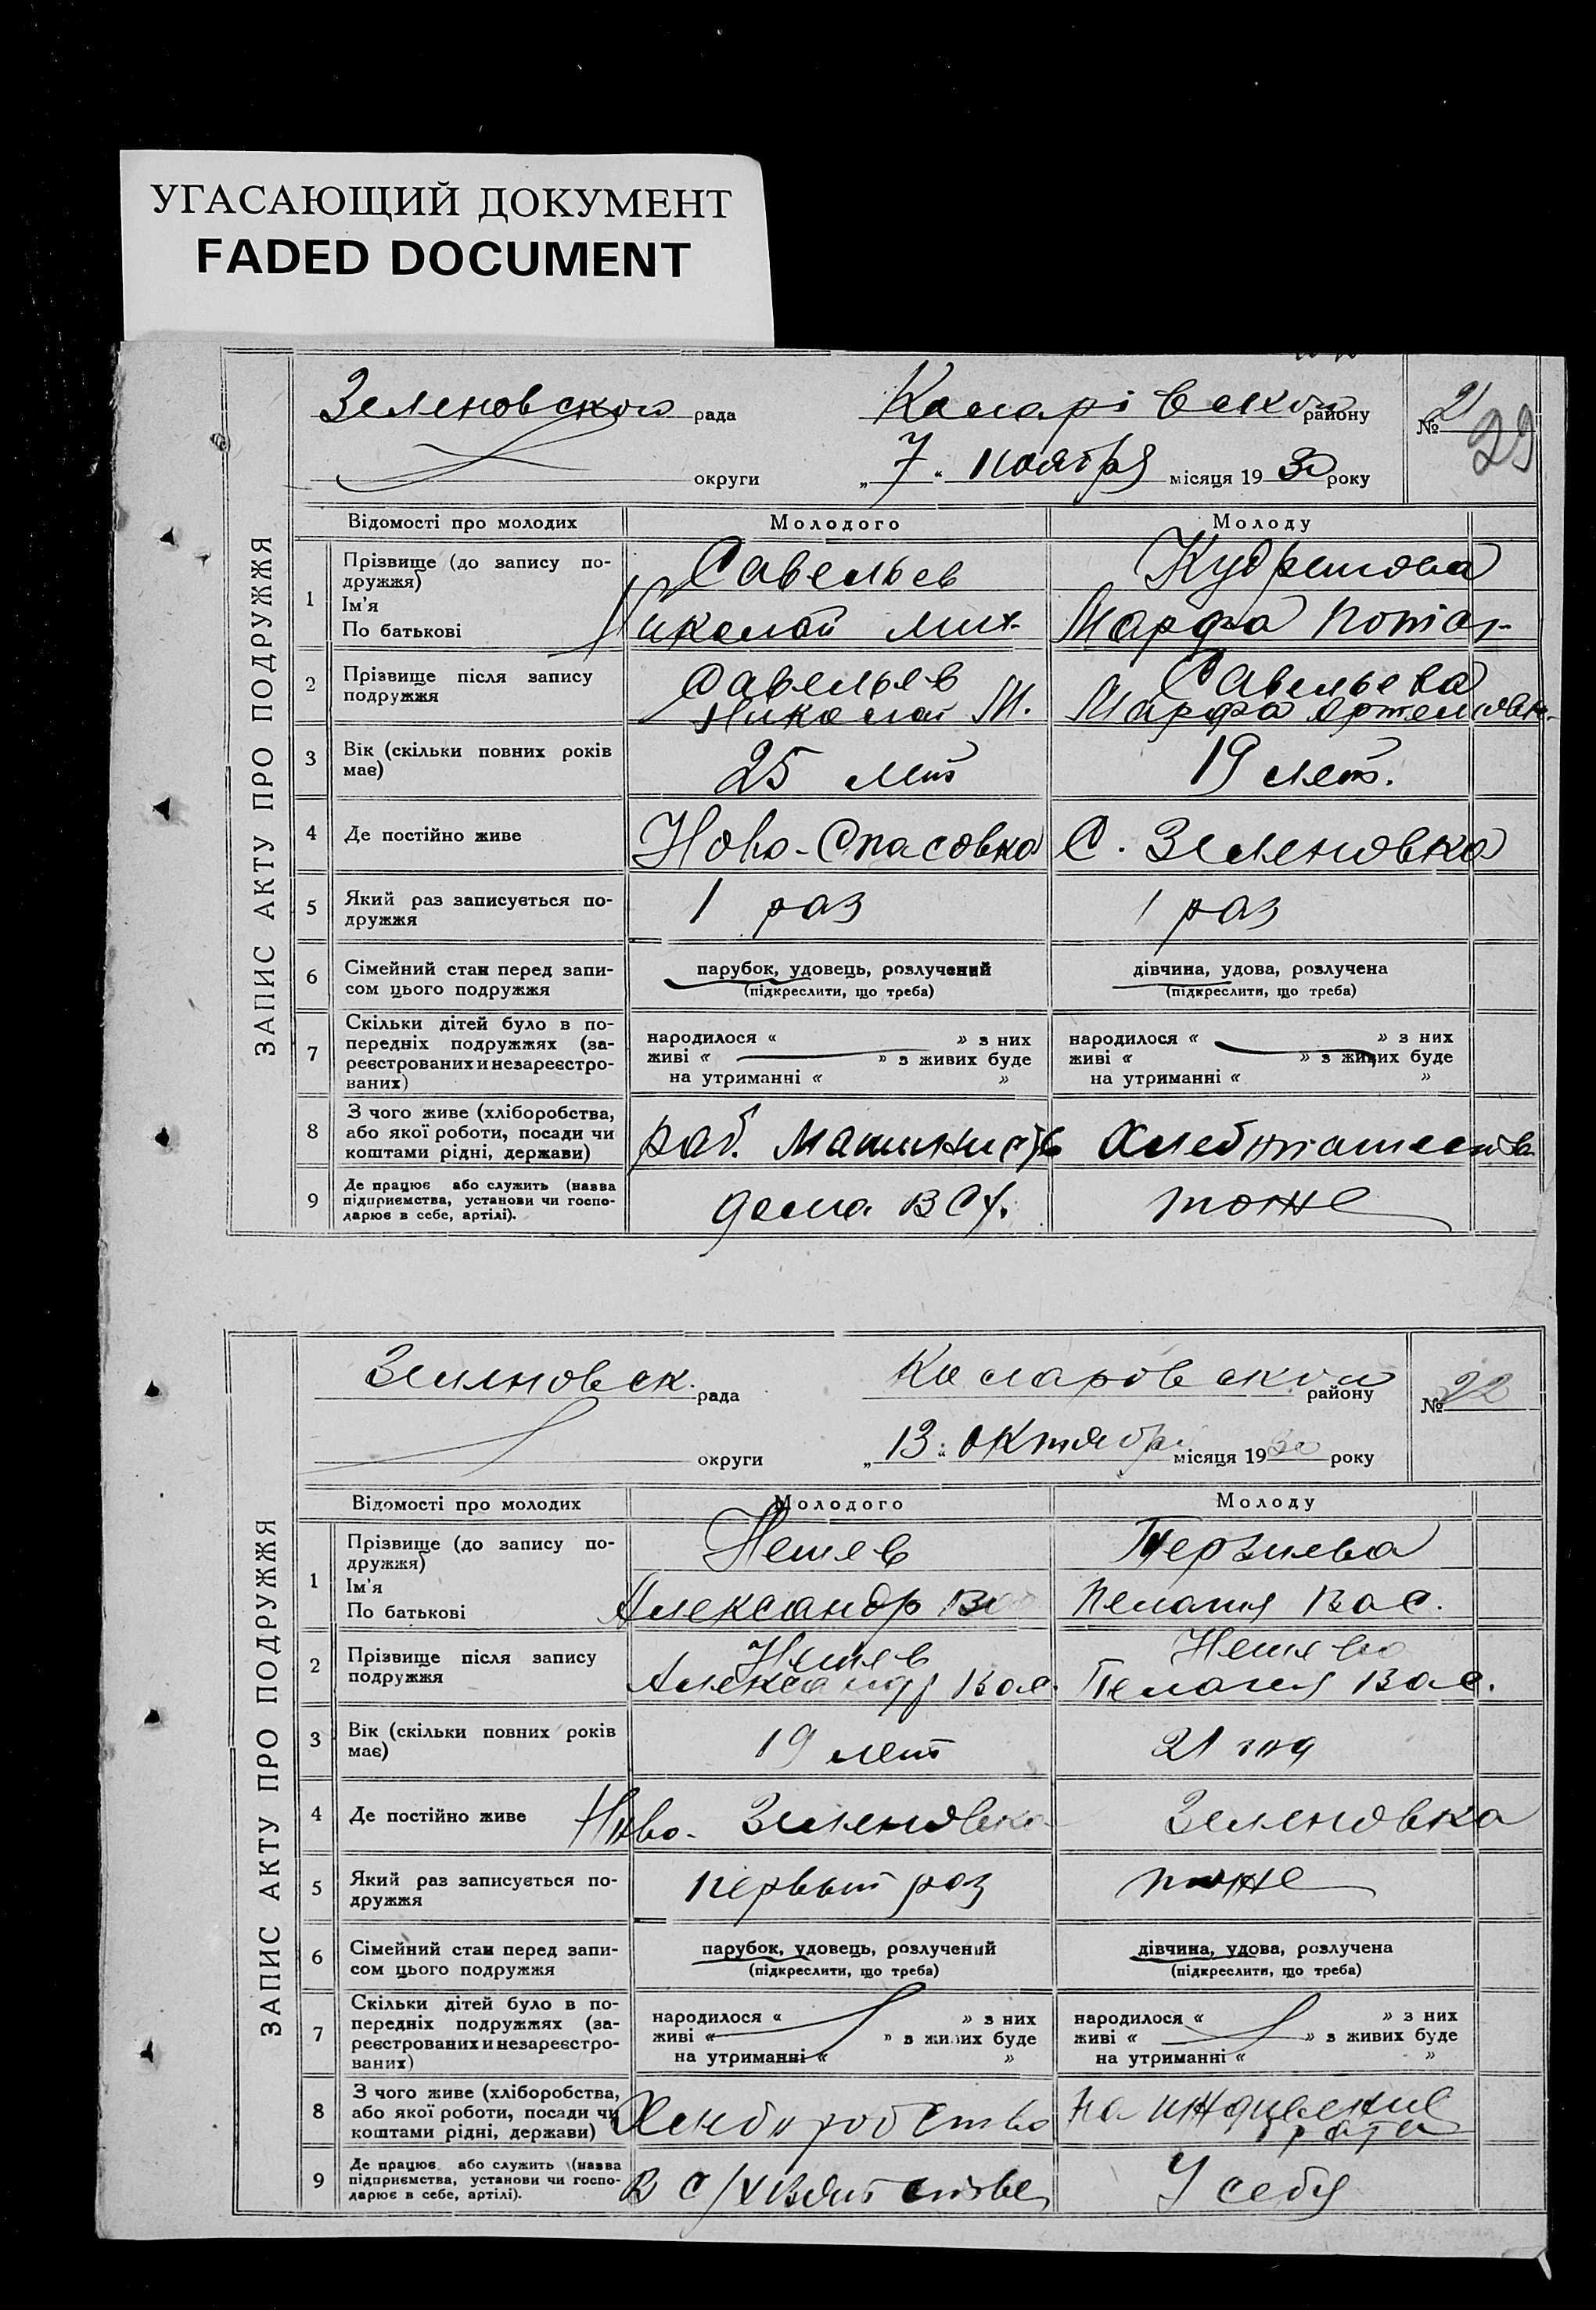 УГАСАЮЩИЙ ДОКУМЕНТ
FADED DOCUMENT
ЗАПИС АКТУ ПРО ПОДРУЖЖЯ
Зеленовского рада Коларівского району № 21
29
округи „7“ ноября місяця 1930 року
Відомості про молодих Молодого Молоду
1 Прізвище (до запису по-
дружжя)
Ім'я
По батькові
Савельев
Николай Мих.
Марфа
2 Прізвище після запису
подружжя
Савельев
Николай М.
Савельева
Марфа
3 Вік (скільки повних років
має)
25 лет 19 лет.
4 Де постійно живе Ново-Спасовка С. Зеленовка
5 Який раз записується по-
дружжя
1 раз 1 раз
6 Сімейний стан перед запи-
сом цього подружжя
парубок, удовець, розлучений
(підкреслити, що треба)
дівчина, удова, розлучена
(підкреслити, що треба)
7 Скільки дітей було в по-
передніх подружжях (за-
реєстрованих и незареєстро-
ваних)
народилося « » з них
живі « » з живих буде
на утриманні « »
народилося « » з них
живі « » з живих буде
на утриманні « »
8 З чого живе (хліборобства,
або якої роботи, посади чи
коштами рідні, держави)
раб.
9 Де працює або служить (назва
підприємства, установи чи госпо-
дарює в себе, артілі).
дома тоже
ЗАПИС АКТУ ПРО ПОДРУЖЖЯ
Зеленовск. рада Коларовского району № 22
округи „13“ октябр місяця 1930 року
Відомості про молодих Молодого Молоду
1 Прізвище (до запису по-
дружжя)
Ім'я
По батькові
Нешев
Александр
Терзиева
Пелагия Вас.
2 Прізвище після запису
подружжя
Нешев
Александр Вас.
Нешева
Пелагия Вас.
3 Вік (скільки повних років
має)
19 лет 21 год
4 Де постійно живе Ново-Зеленовка Зеленовка
5 Який раз записується по-
дружжя
первый раз тоже
6 Сімейний стан перед запи-
сом цього подружжя
парубок, удовець, розлучений
(підкреслити, що треба)
дівчина, удова, розлучена
(підкреслити, що треба)
7 Скільки дітей було в по-
передніх подружжях (за-
реєстрованих и незареєстро-
ваних)
народилося « » з них
живі « » з живих буде
на утриманні « »
народилося « » з них
живі « » з живих буде
на утриманні « »
8 З чого живе (хліборобства,
або якої роботи, посади чи
коштами рідні, держави)
на иждивении
9 Де працює або служить (назва
підприємства, установи чи госпо-
дарює в себе, артілі).
В с/х У себя